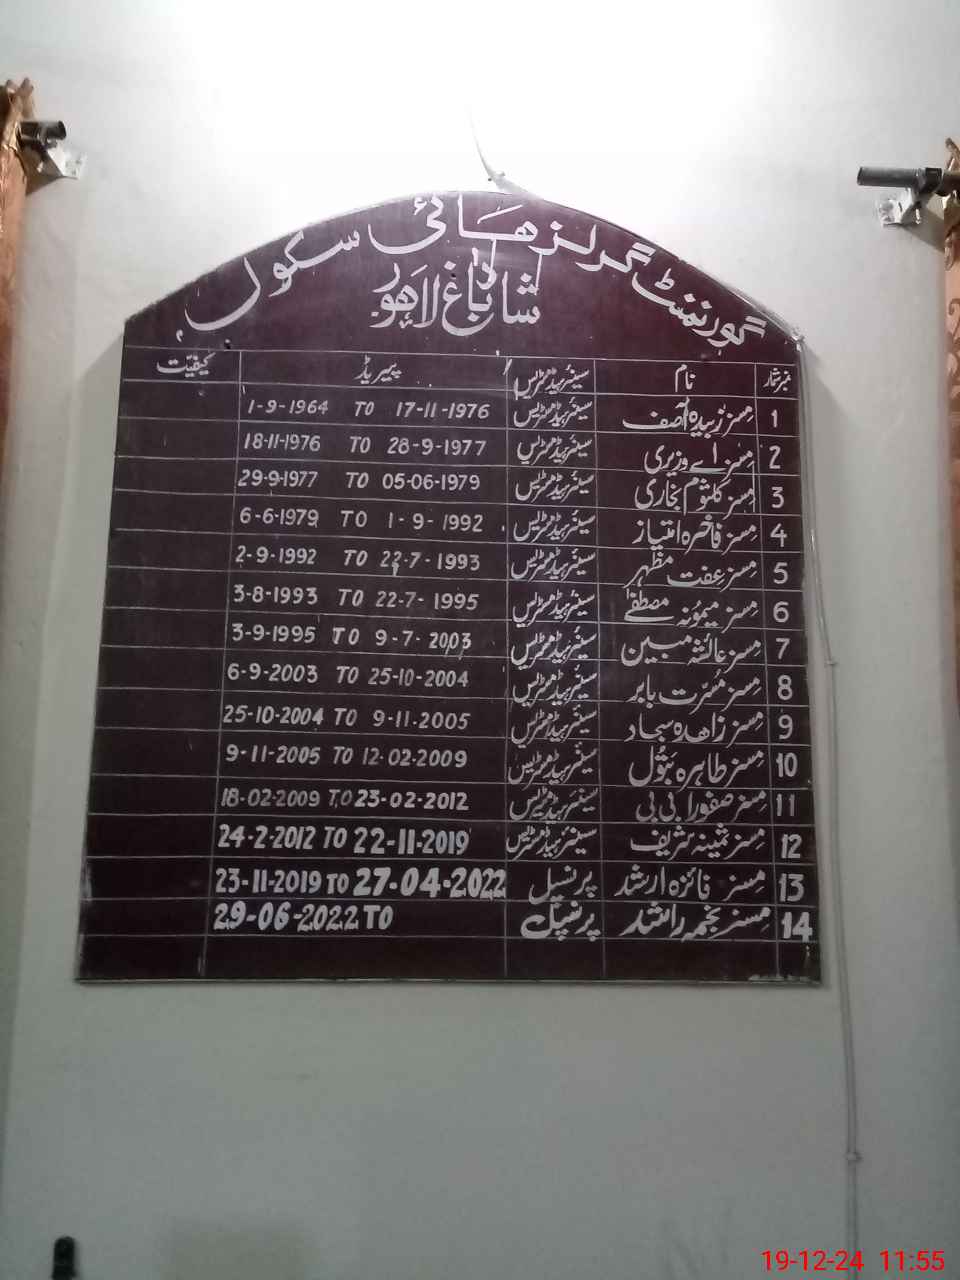 گورنمنٹ گرلز ھائی سکول
شاد باغ لاہور
نمبر شمار نام سینئر ہیڈمسٹریس پیریڈ کیفیّت
1 مسز زبیدہ آصف سینئر ہیڈمسٹریس 1-9-1964 TO 17-11-1976
2 مسز اے وزیری سینئر ہیڈمسٹریس 18-11-1976 TO 28-9-1977
3 مسز کلثوم بخاری سینئر ہیڈمسٹریس 29-9-1977 TO 05-06-1979
4 مسز فاخرہ امتیاز سینئر ہیڈمسٹریس 6-6-1979 TO 1-9-1992
5 مسز عفت مظہر سینئر ہیڈمسٹریس 2-9-1992 TO 22-7-1993
6 مسز میمونہ مصطفےٰ سینئر ہیڈمسٹریس 3-8-1993 TO 22-7-1995
7 مسز عائشہ مبین سینئر ہیڈمسٹریس 3-9-1995 TO 9-7-2003
8 مسز مسرّت بابر سینئر ہیڈمسٹریس 6-9-2003 TO 25-10-2004
9 مسز زاھدہ سجاد سینئر ہیڈمسٹریس 25-10-2004 TO 9-11-2005
10 مسز طاہرہ بتول سینئر ہیڈمسٹریس 9-11-2005 TO 12-02-2009
11 مسز صفورا بی بی سینئر ہیڈمسٹریس 18-02-2009 TO 23-02-2012
12 مسز ثمینہ شریف سینئر ہیڈمسٹریس 24-2-2012 TO 22-11-2019
13 مسز فائزہ ارشد پرنسپل 23-11-2019 TO 27-04-2022
14 مسز نجمہ راشد پرنسپل 29-06-2022 TO
19-12-24 11:55